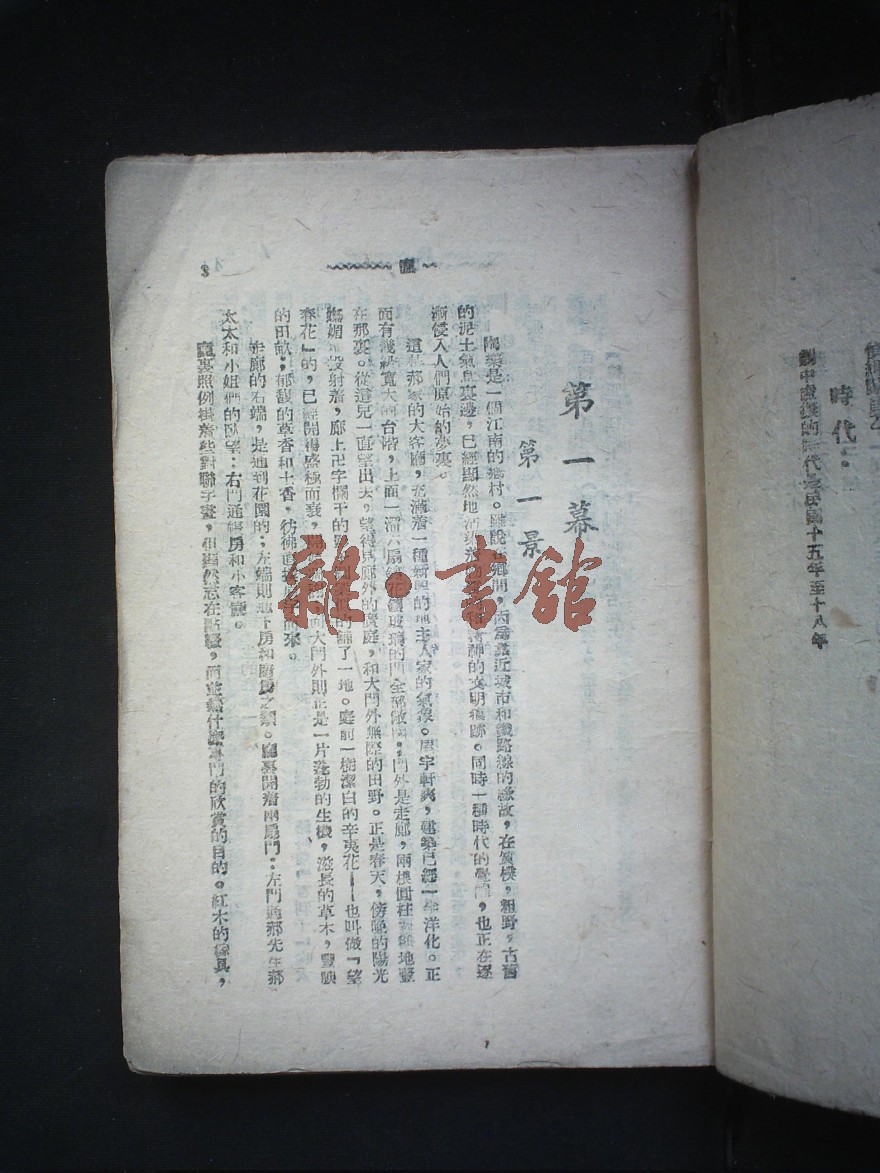 時代：
劇中 的時代 民國十五年至十八年
第一幕
第一景
是一個江南的鄉村。雖說 鄉間，因為靠近城市和鐵路線的緣故，在質樸，粗野，古舊
的泥土氣息裏邊，已經顯然地 的文明痕跡。同時一種時代的 ，也正在逐
漸侵入人們原始的夢裏。
這是郝家的大客廳，充滿着一種新興的地主人家的氣象。屋宇軒爽，建築已經一半洋化。正
面有幾級寬大的台階，上面一溜六扇 玻璃的門全部敞開；門外是走廊，兩根圓柱 地矗
在那裏。從這兒一直望出去，望得見廊外的廣庭，和大門外無際的田野。正是春天，傍晚的陽光
嫵媚 投射着，廊上卍字欄干的 了一地。庭前一樹潔白的辛夷花——也叫做「望
春花」的，已經開得盛極而衰， 大門外則正是一片蓬勃的生機，滋長的草木，豐 
的田畝；郁馥的草香和土香，彷彿 來。
走廊的右端，是通到花園的；左端則通 房和廚房之類。廳裏開着兩扇門：左門通郝先生郝
太太和小姐們的臥室；右門通 房和小客廳。
廳裏照例掛着些對聯字畫，但顯然志在點綴，而並無什麼專門的欣賞的目的。紅木的傢具，
3
雜·書館